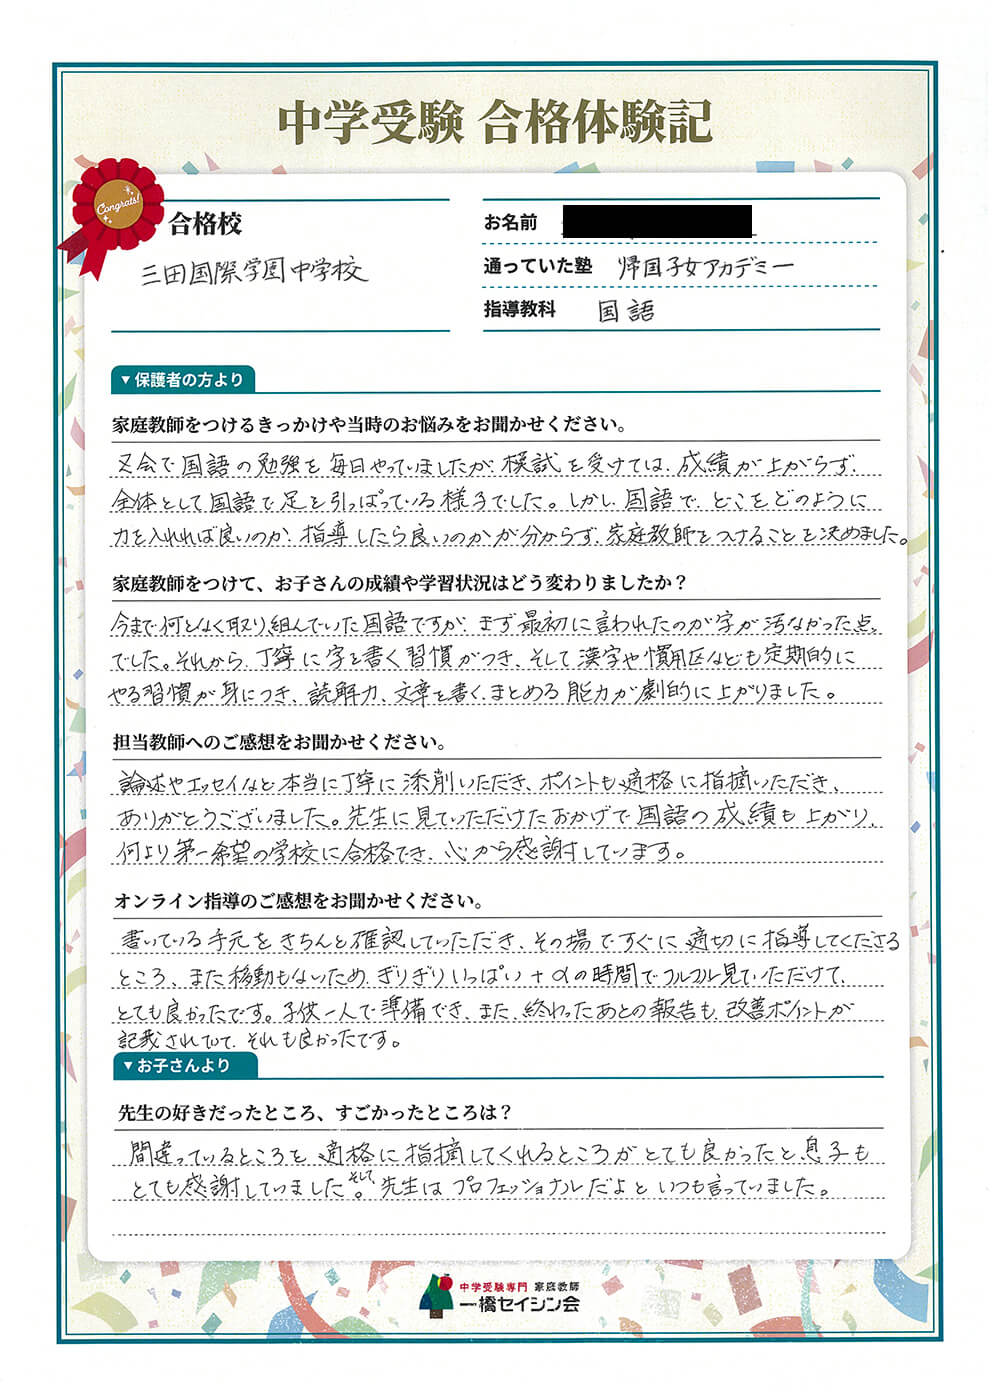 中学受験 合格体験記
Congrats!
合格校
三田国際学園中学校
お名前
通っていた塾 帰国子女アカデミー
指導教科 国語
▼保護者の方より
家庭教師をつけるきっかけや当時のお悩みをお聞かせください。
で国語の勉強を毎日やっていましたが、模試を受けては、成績が上がらず、
全体として国語で足を引っぱっている様子でした。しかし、国語で、どこをどのように
力を入れれば良いのか、指導したら良いのかが分からず、家庭教師をつけることを決めました。
家庭教師をつけて、お子さんの成績や学習状況はどう変わりましたか?
今まで何となく取り組んでいた国語ですが、まず最初に言われたのが字が汚なかった点、
でした。それから、丁寧に字を書く習慣がつき、そして漢字や慣用区なども定期的に
やる習慣が身につき、読解力、文章を書く、まとめる能力が劇的に上がりました。
担当教師へのご感想をお聞かせください。
論述やエッセイなど本当に丁寧に添削いただき、ポイントも適格に指摘いただき、
ありがとうございました。先生に見ていただけたおかげで国語の成績も上がり、
何より第一希望の学校に合格でき、心から感謝しています。
オンライン指導のご感想をお聞かせください。
書いている手元をきちんと確認していただき、その場ですぐに適切に指導してくださる
ところ、また移動もないため、ぎりぎりいっぱい+αの時間でフルフル見ていただけて、
とても良かったです。子供一人で準備でき、また、終わったあとの報告も、改善ポイントが
記載されていて、それも良かったです。
▼お子さんより
先生の好きだったところ、すごかったところは?
間違っているところを適格に指摘してくれるところがとても良かったと息子も
とても感謝していました。そして、先生はプロフェッショナルだよといつも言っていました。
中学受験専門 家庭教師
一橋セイシン会